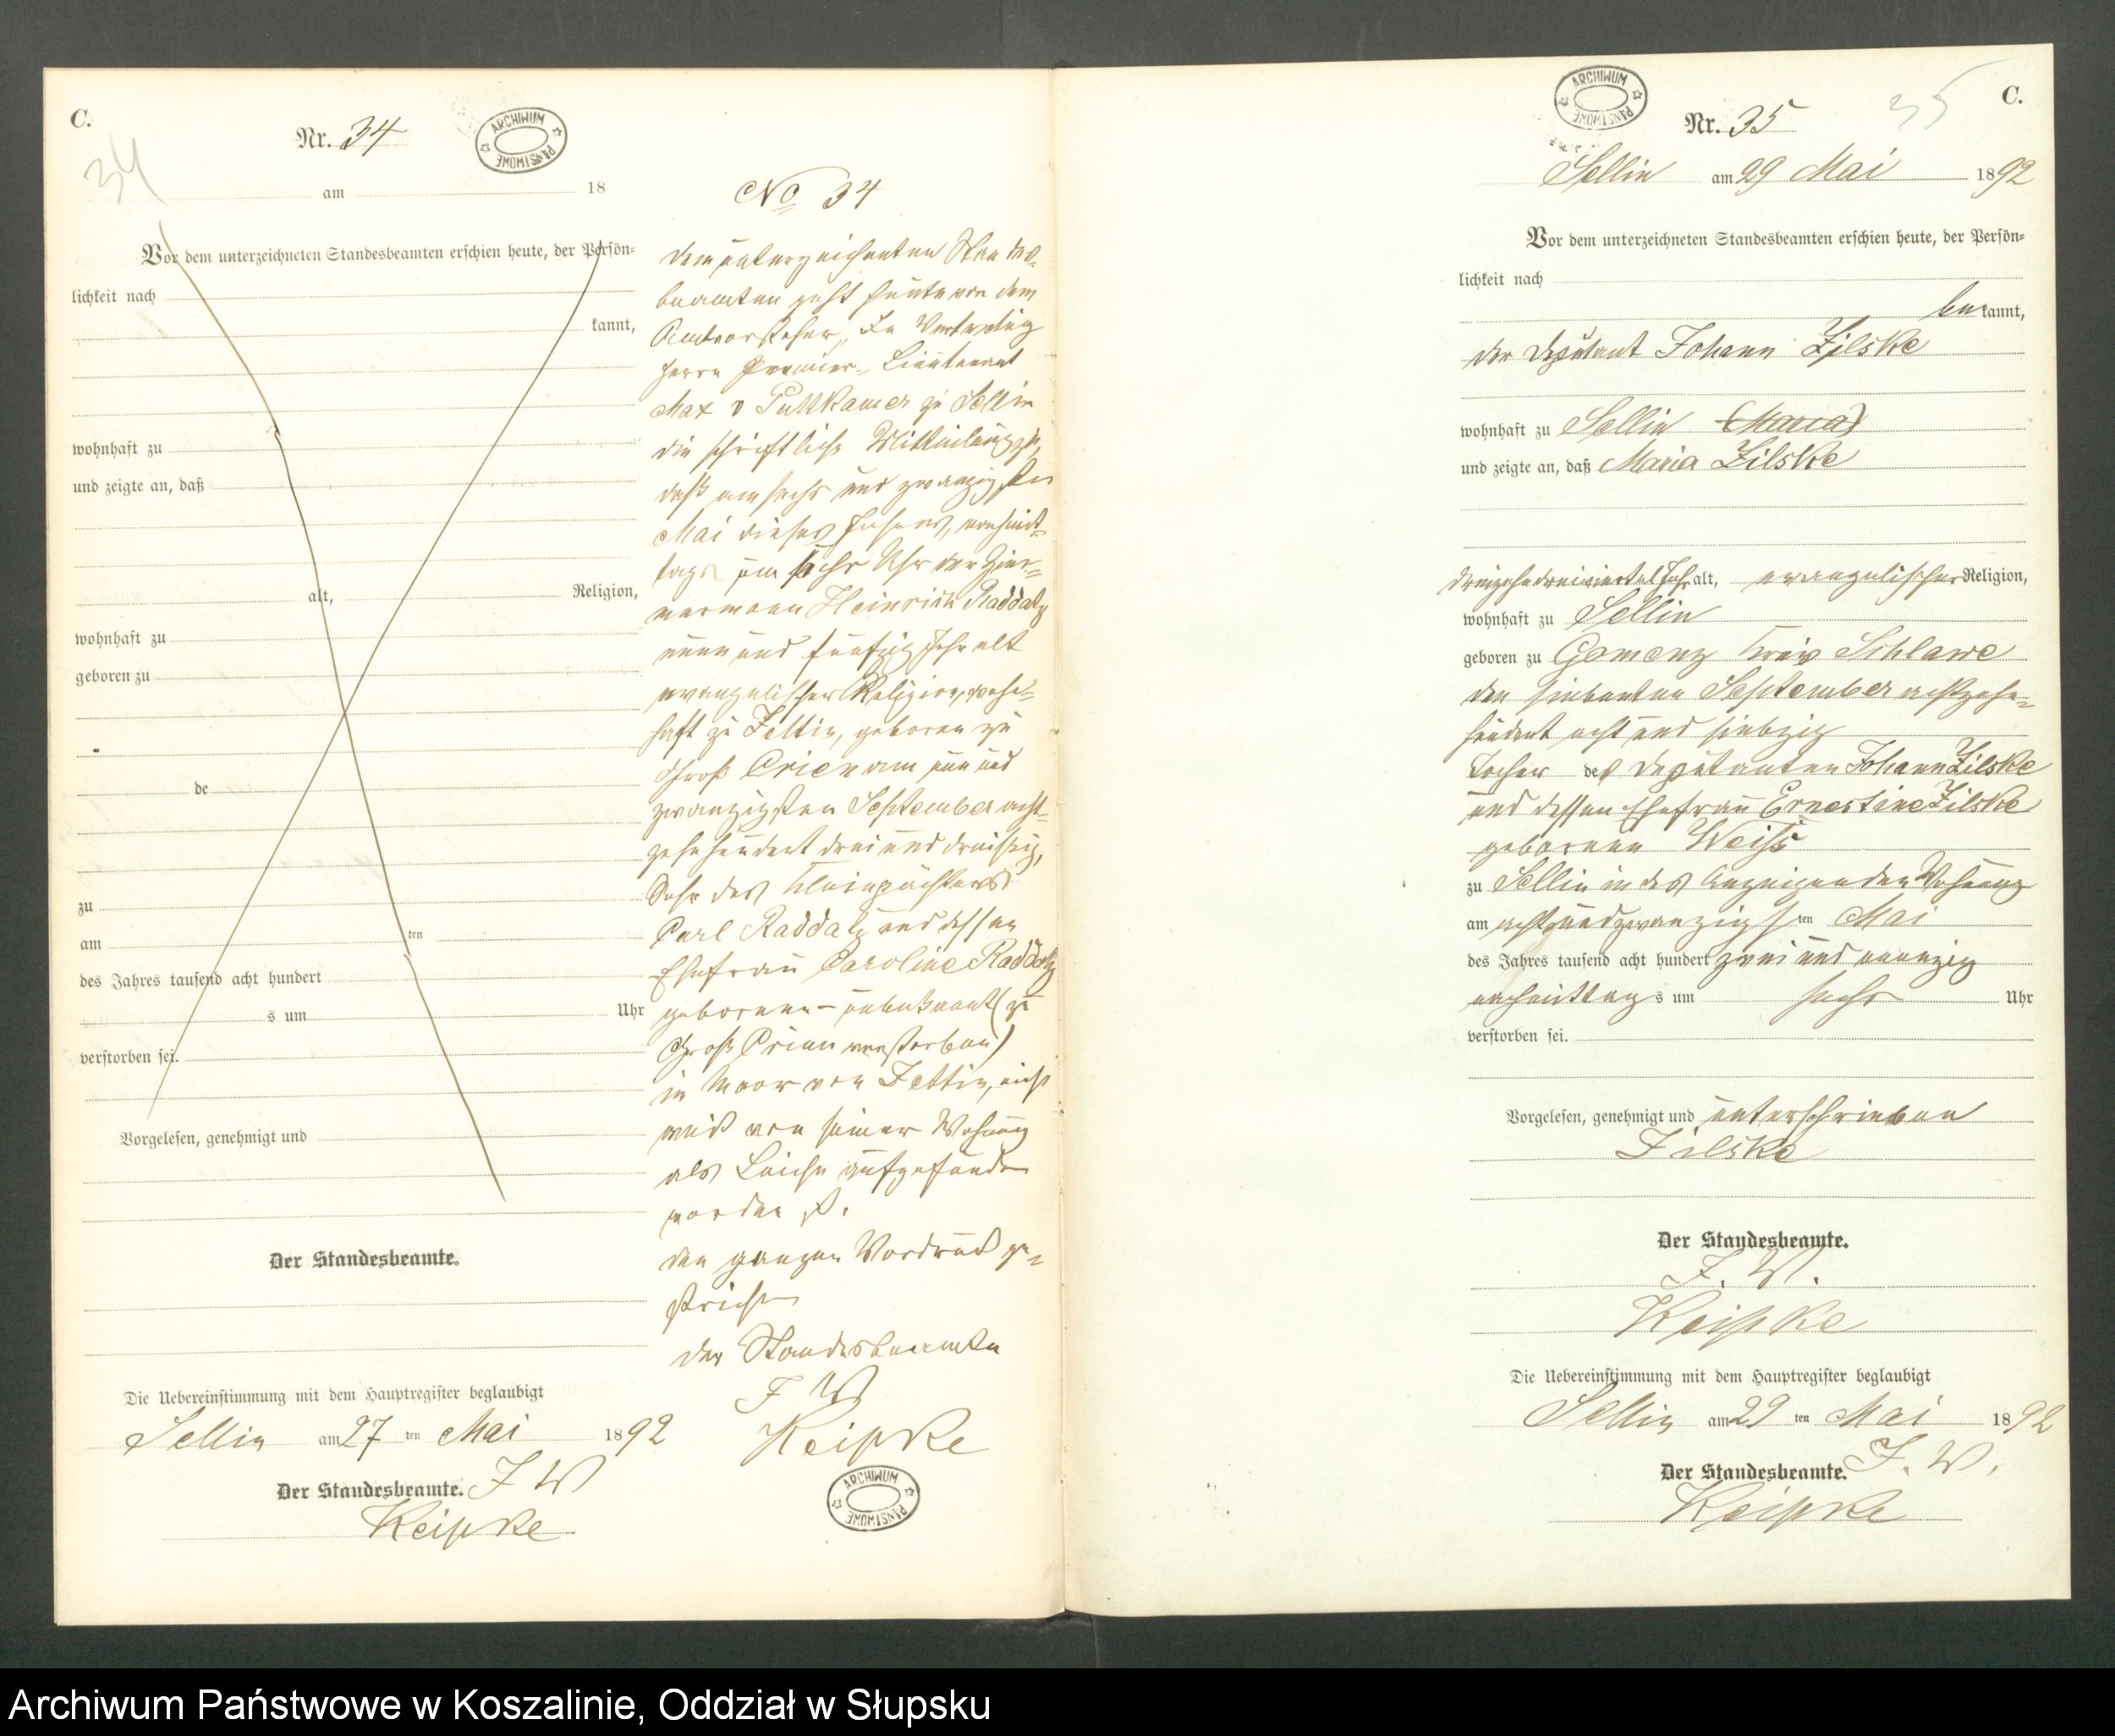 C.
34
Nr. 34
ARCHIWUM PAŃSTWOWE
am 18
Vor dem unterzeichneten Standesbeamten erschien heute, der Persön-
lichkeit nach
kannt,
wohnhaft zu
und zeigte an, daß
alt, Religion,
wohnhaft zu
geboren zu
de
zu
am ten
des Jahres tausend acht hundert
s um Uhr
verstorben sei.
Vorgelesen, genehmigt und
Der Standesbeamte.
Die Uebereinstimmung mit dem Hauptregister beglaubigt
Sellin am 27 ten Mai 1892
Der Standesbeamte. J W
Keipke
No 34
Dem unterzeichneten Standes-
beamten geht heute von dem
Amtvorsteher, In Vertretung
Herrn Premier-Lieutenant
Max v Puttkamer zu Sellin
die schriftliche Mittheilung zu,
daß am sechs und zwanzigsten
Mai dieses Jahres, vormit-
tags um sechs Uhr der Zim-
mermann Heinrich Raddatz
neun und fünfzig Jahr alt
evangelischer Religion, wohn-
haft zu Zettin, geboren zu
Groß Crien am neun und
zwanzigsten September acht-
zehnhundert drei und dreißig,
Sohn des Kleinpächters
Carl Raddatz und dessen
Ehefrau Caroline Raddatz
geborene – unbekannt (zu
Groß Crien verstorben)
im Moor von Zettin, nicht
weit von seiner Wohnung
als Leiche aufgefunden
worden ist.
Den ganzen Vordruck ge-
strichen
Der Standesbeamte
J W
Keipke
ARCHIWUM PAŃSTWOWE
ARCHIWUM PAŃSTWOWE
35
C.
Nr. 35
Sellin am 29 Mai 1892
Vor dem unterzeichneten Standesbeamten erschien heute, der Persön-
lichkeit nach
bekannt,
der Deputant Johann Zilske
wohnhaft zu Sellin (Maria)
und zeigte an, daß Maria Zilske
dreizehndreiviertel Jahr alt, evangelischer Religion,
wohnhaft zu Sellin
geboren zu Gomenz Kreis Schlawe
den siebenten September achtzehn-
hundert acht und siebzig
Tochter des Deputanten Johann Zilske
und dessen Ehefrau Ernestine Zilske
geborenen Weiss
zu Sellin in des Anzeigenden Wohnung
am acht und zwanzigsten Mai
des Jahres tausend acht hundert zwei und neunzig
nachmittags um sechs Uhr
verstorben sei.
Vorgelesen, genehmigt und unterschrieben
Zilske
Der Standesbeamte.
J. W.
Keipke
Die Uebereinstimmung mit dem Hauptregister beglaubigt
Sellin am 29 ten Mai 1892
Der Standesbeamte. J. W.
Keipke
Archiwum Państwowe w Koszalinie, Oddział w Słupsku